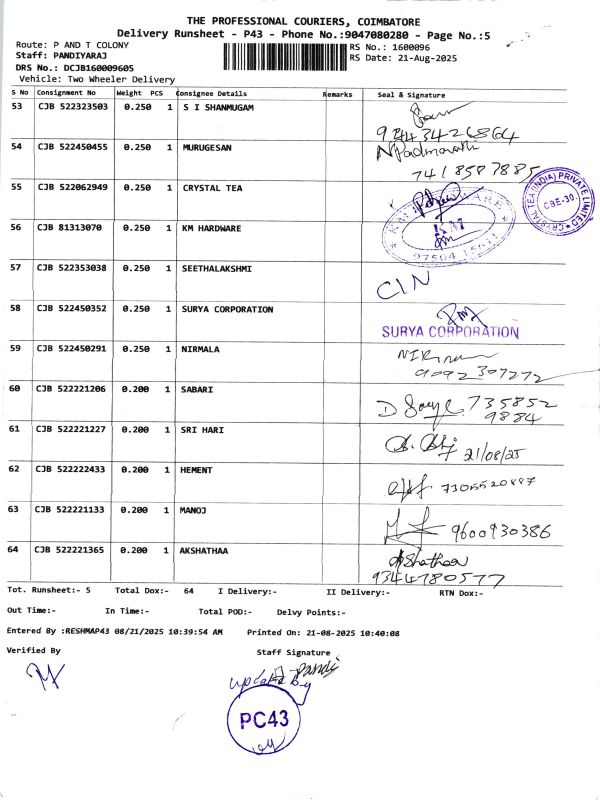 THE PROFESSIONAL COURIERS, COIMBATORE
Delivery Runsheet - P43 - Phone No.:9047080280 - Page No.:5
Route: P AND T COLONY
RS No.: 1600096
Staff: PANDIYARAJ
RS Date: 21-Aug-2025
DRS No.: DCJB160009605
Vehicle: Two Wheeler Delivery
S No Consignment No Weight PCS Consignee Details Remarks Seal & Signature
53 CJB 522323503 0.250 1 S I SHANMUGAM
93443426864
54 CJB 522450455 0.250 1 MURUGESAN N Padmavathi
7418587885
55 CJB 522062949 0.250 1 CRYSTAL TEA
CRYSTAL TEA (INDIA) PRIVATE LIMITED
CBE-30.
56 CJB 81313070 0.250 1 KM HARDWARE
KM
57 CJB 522353038 0.250 1 SEETHALAKSHMI CIN
58 CJB 522450352 0.250 1 SURYA CORPORATION
SURYA CORPORATION
59 CJB 522450291 0.250 1 NIRMALA
9092307272
60 CJB 522221206 0.200 1 SABARI 735852
9884
61 CJB 522221227 0.200 1 SRI HARI
21/08/25
62 CJB 522222433 0.200 1 HEMENT
63 CJB 522221133 0.200 1 MANOJ 9600930386
64 CJB 522221365 0.200 1 AKSHATHAA
9344780577
Tot. Runsheet:- 5 Total Dox:- 64 I Delivery:- II Delivery:- RTN Dox:-
Out Time:- In Time:- Total POD:- Delvy Points:-
Entered By :RESHMAP43 08/21/2025 10:39:54 AM Printed On: 21-08-2025 10:40:08
Verified By Staff Signature
Pandi
PC43